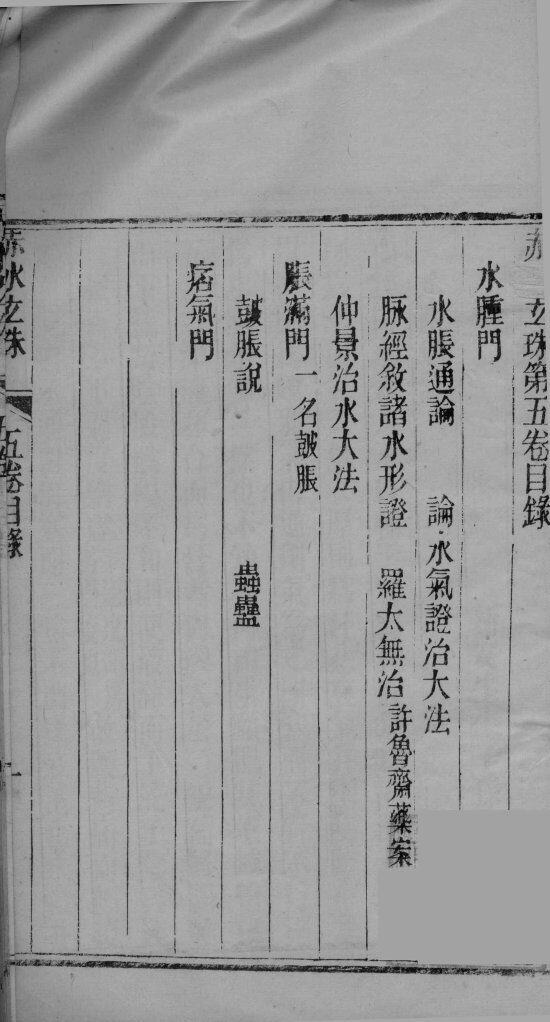 赤水玄珠第五卷目錄
水腫門
水脹通論　論水氣證治大法
脉經敘諸水形證　羅太無治許魯齋藥案
仲景治水大法
脹滿門一名皷脹
皷脹說　蟲蠱
痞氣門
赤水玄珠　五卷目錄　一